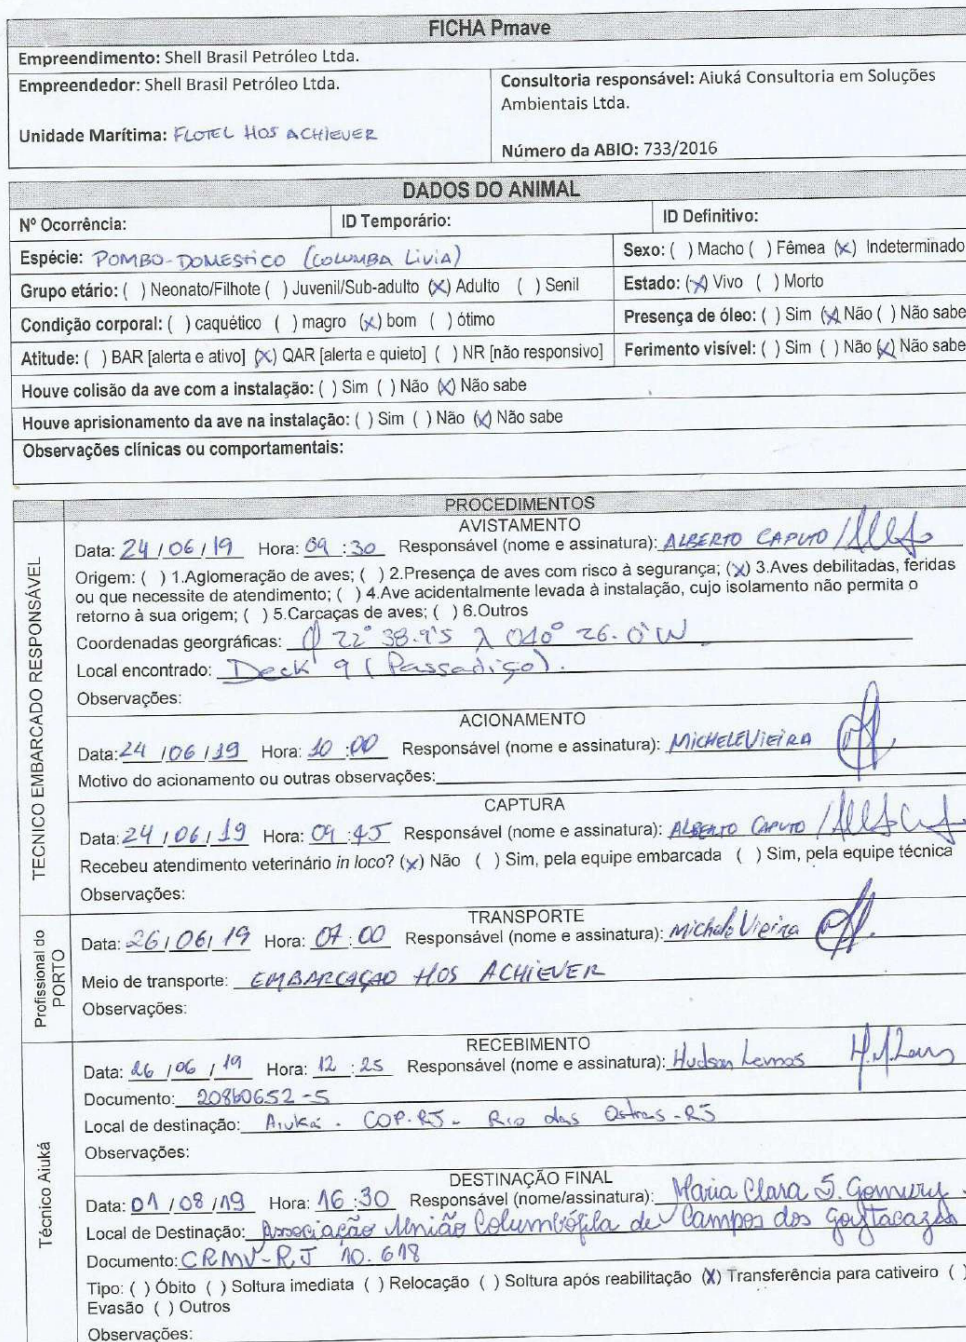 FICHA Pmave
Empreendimento: Shell Brasil Petróleo Ltda.
Empreendedor: Shell Brasil Petróleo Ltda.
Unidade Marítima: FLOTEL HOS ACHIEVER
Consultoria responsável: Aiuká Consultoria em Soluções
Ambientais Ltda.
Número da ABIO: 733/2016
DADOS DO ANIMAL
Nº Ocorrência: ID Temporário: ID Definitivo:
Espécie: POMBO-DOMESTICO (COLUMBA LIVIA) Sexo: ( ) Macho ( ) Fêmea (x) Indeterminado
Grupo etário: ( ) Neonato/Filhote ( ) Juvenil/Sub-adulto (x) Adulto ( ) Senil Estado: (x) Vivo ( ) Morto
Condição corporal: ( ) caquético ( ) magro (x) bom ( ) ótimo Presença de óleo: ( ) Sim (x) Não ( ) Não sabe
Atitude: ( ) BAR [alerta e ativo] (x) QAR [alerta e quieto] ( ) NR [não responsivo] Ferimento visível: ( ) Sim ( ) Não (x) Não sabe
Houve colisão da ave com a instalação: ( ) Sim ( ) Não (x) Não sabe
Houve aprisionamento da ave na instalação: ( ) Sim ( ) Não (x) Não sabe
Observações clínicas ou comportamentais:
PROCEDIMENTOS
TECNICO EMBARCADO RESPONSÁVEL
AVISTAMENTO
Data: 24/06/19 Hora: 09:30 Responsável (nome e assinatura): ALBERTO CAPUTO
Origem: ( ) 1.Aglomeração de aves; ( ) 2.Presença de aves com risco à segurança; (x) 3.Aves debilitadas, feridas
ou que necessite de atendimento; ( ) 4.Ave acidentalmente levada à instalação, cujo isolamento não permita o
retorno à sua origem; ( ) 5.Carcaças de aves; ( ) 6.Outros
Coordenadas georgráficas: φ 22° 38.9'S λ 040° 26.0'W
Local encontrado: Deck 9 (Passadiço).
Observações:
ACIONAMENTO
Data: 24/06/19 Hora: 10:00 Responsável (nome e assinatura): MICHELE VIEIRA
Motivo do acionamento ou outras observações:
CAPTURA
Data: 24/06/19 Hora: 09:45 Responsável (nome e assinatura): ALBERTO CAPUTO
Recebeu atendimento veterinário in loco? (x) Não ( ) Sim, pela equipe embarcada ( ) Sim, pela equipe técnica
Observações:
Profissional do PORTO
TRANSPORTE
Data: 26/06/19 Hora: 07:00 Responsável (nome e assinatura): Michele Vieira
Meio de transporte: EMBARCAÇAO HOS ACHIEVER
Observações:
Técnico Aiuká
RECEBIMENTO
Data: 26/06/19 Hora: 12:25 Responsável (nome e assinatura): Hudson Lemos
Documento: 20860652-5
Local de destinação: Aiuká - COP-RJ - Rio das Ostras-RJ
Observações:
DESTINAÇÃO FINAL
Data: 01/08/19 Hora: 16:30 Responsável (nome/assinatura): Maria Clara S.
Local de Destinação: Associação União Columbófila de Campos dos Goytacazes
Documento: CRMV-RJ 10.618
Tipo: ( ) Óbito ( ) Soltura imediata ( ) Relocação ( ) Soltura após reabilitação (X) Transferência para cativeiro ( )
Evasão ( ) Outros
Observações: